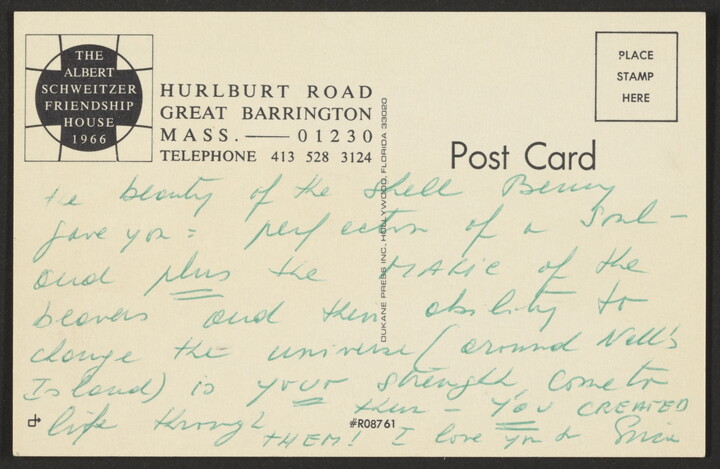 THE
ALBERT
SCHWEITZER
FRIENDSHIP
HOUSE
1966
HURLBURT ROAD
GREAT BARRINGTON
MASS. — 01230
TELEPHONE 413 528 3124
PLACE
STAMP
HERE
Post Card
DUKANE PRESS INC. HOLLYWOOD, FLORIDA 33020
the beauty of the shell Benny
gave you = perfection of a Soul –
and plus the MAGIC of the
beavers and their ability to
change the universe (around Nell's
Island) is your strength, come to
life through them – YOU CREATED
THEM! I love you &
#R08761